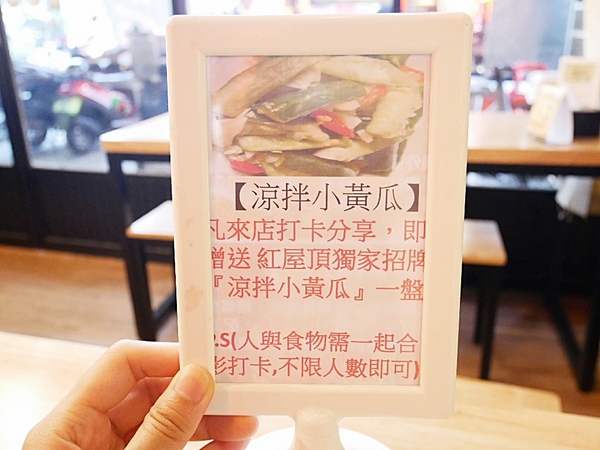 【涼拌小黃瓜】
凡來店打卡分享，即
贈送 紅屋頂獨家招牌
『涼拌小黃瓜』一盤
P.S(人與食物需一起合
影打卡,不限人數即可)